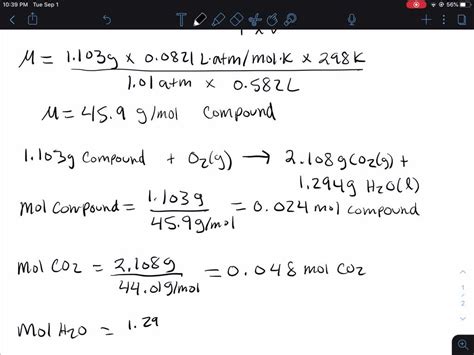 10:39 PM Tue Sep 1
56%
T
P x V
M = 1.103g x 0.0821 L·atm/mol·K x 298K
1.01 atm x 0.582L
M = 45.9 g/mol compound
1.103g compound + O₂(g) → 2.108g CO₂(g) +
1.294g H₂O(l)
mol compound = 1.103g = 0.024 mol compound
45.9g/mol
Mol CO₂ = 2.108g = 0.048 mol CO₂
44.01g/mol
Mol H₂O = 1.29
1
2